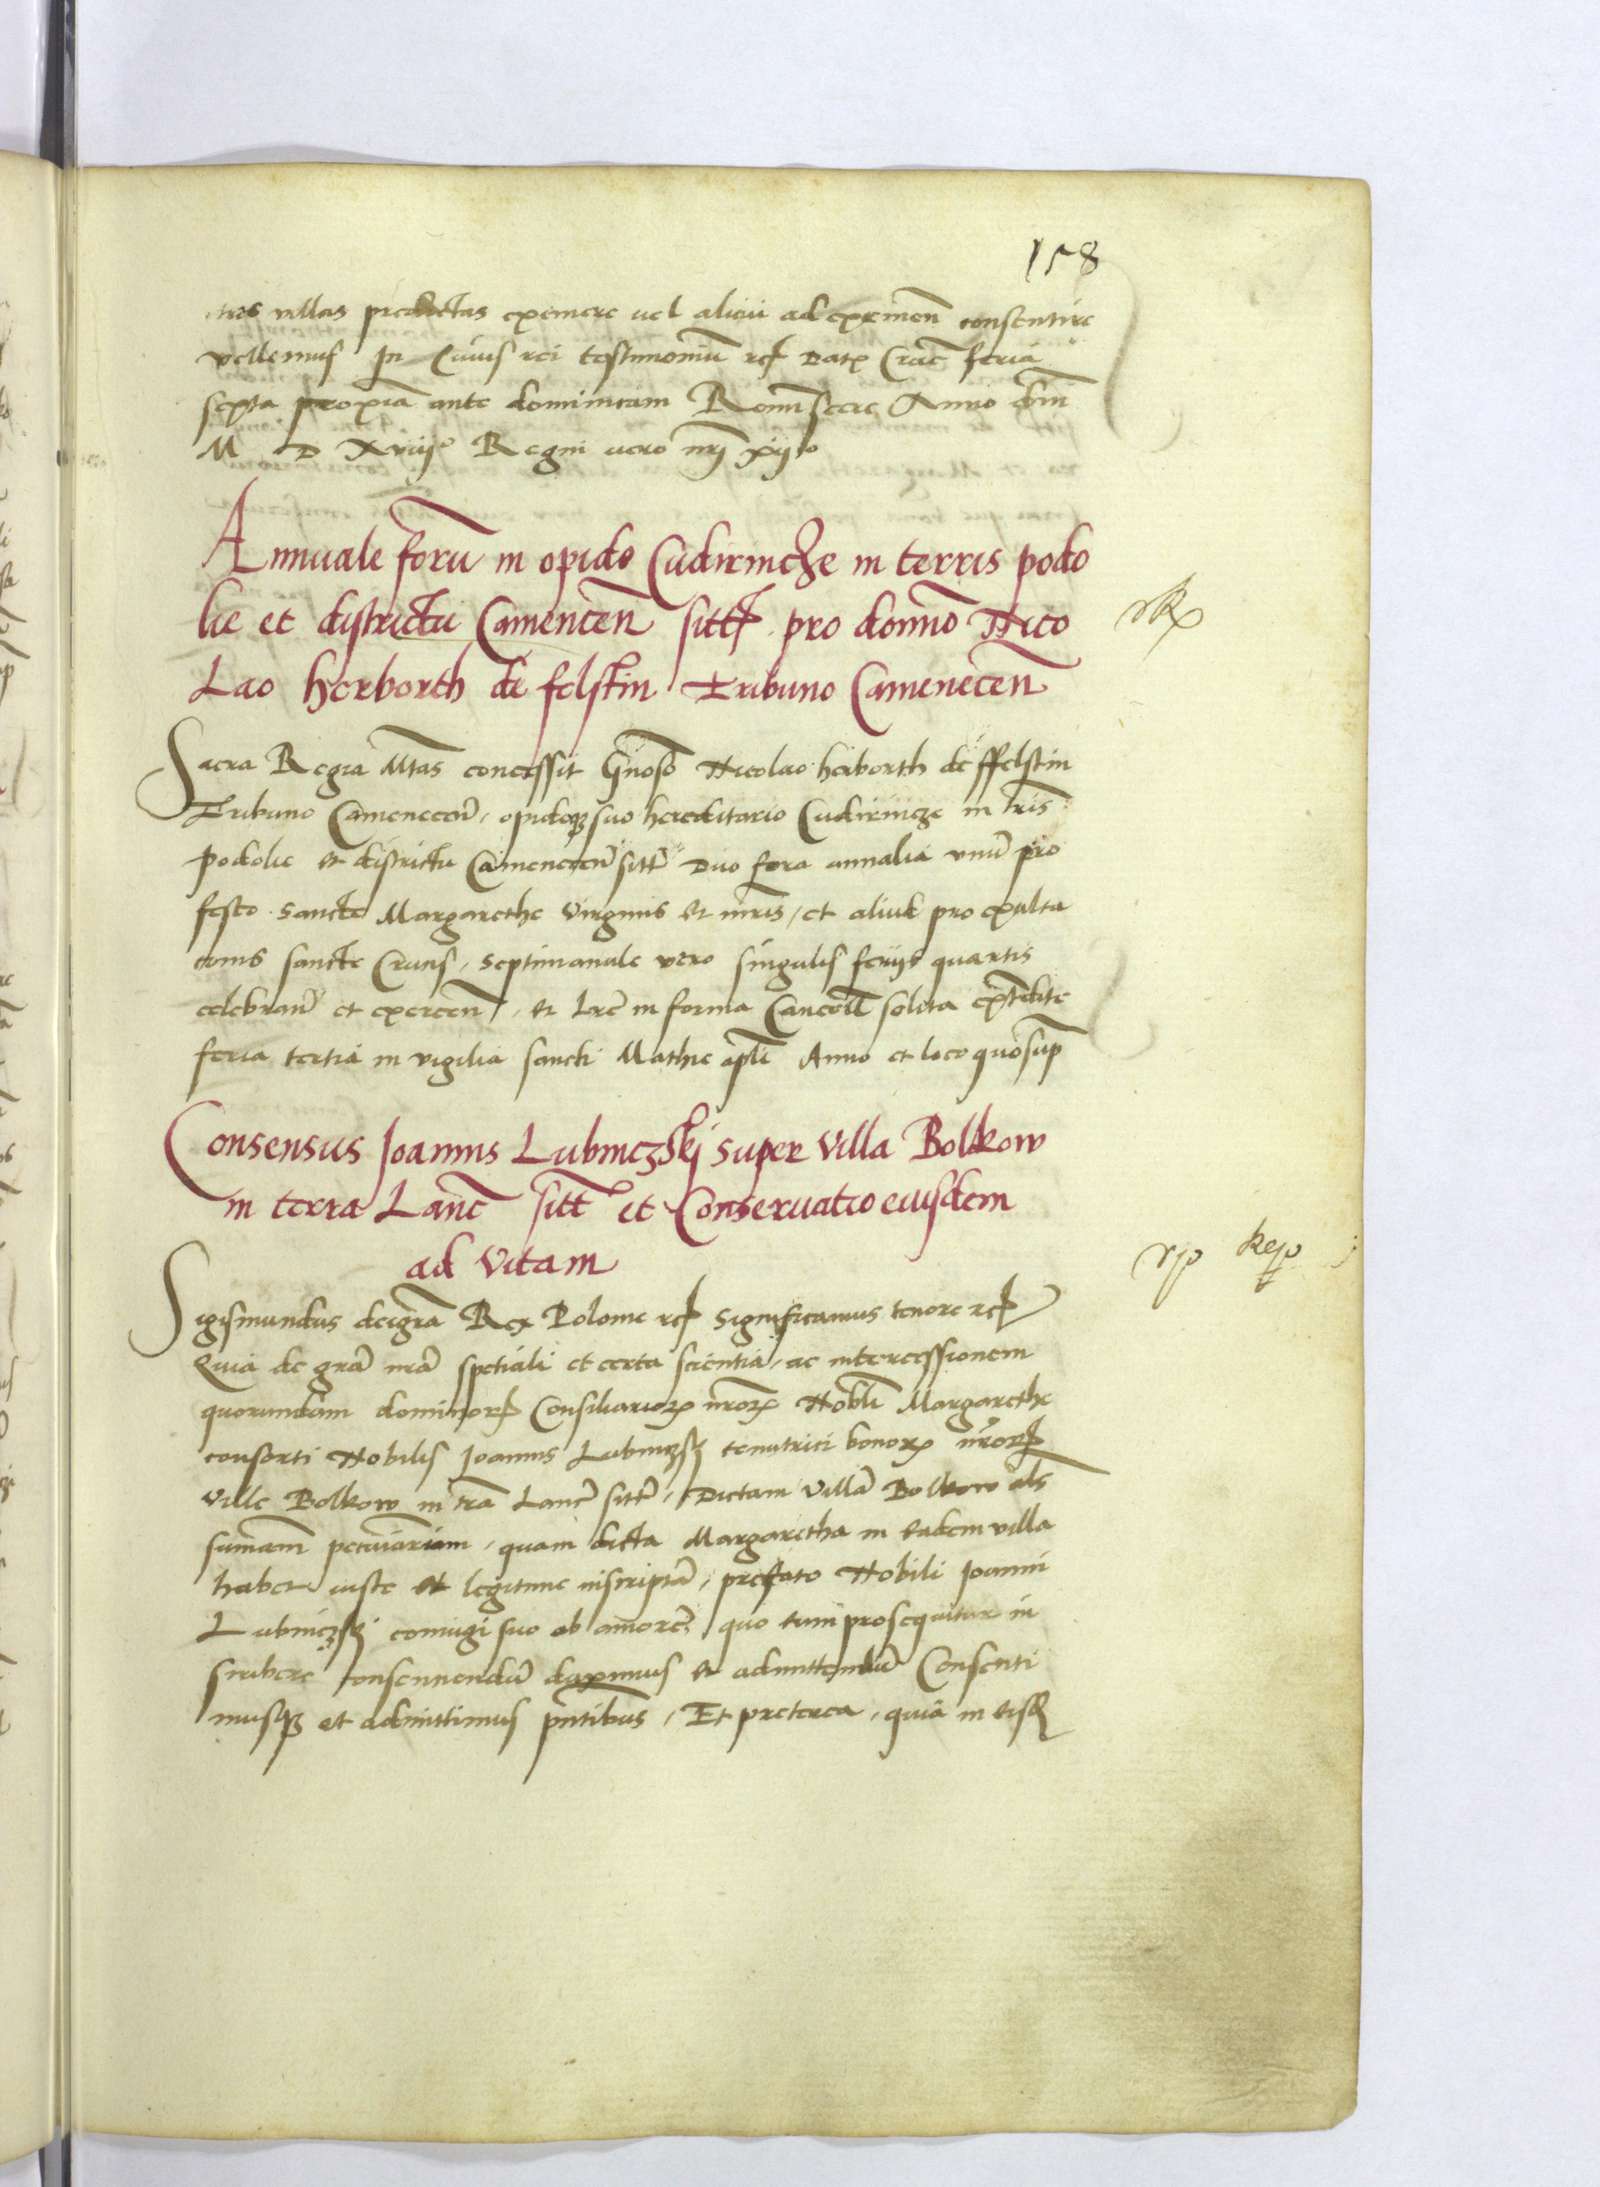 158
tres villas predictas eximere vel alicui ad eximen̄ consentire
vellemus In Cuius rei testimoniū rcȝ Datꝝ Crac̄ feria
sexta proxiā ante dominicam Reminiscere Anno dn̄i
M D Xviijº Regni vero nr̄j xijº
Annuale forū in opido Cudrinche in terris podo
lie et districtu Camencen̄ sitt̄ pro domn̄o Nico
Lao herborth de felstin Tribuno Camenecen̄
Sacra Regia Mtas concessit Gnoso Nicolao herborth de ffelstin
Tribuno Camenecen̄, opidoqꝫ suo hereditario Cudrincze in tris
Podolie et districtu Camenecen̄ sitt̄ Duo fora annalia vnū pro
festo sancte Margarethe virginis et mr̄is, et aliud pro exalta
cionis sancte Crucis, Septimanale vero singulis ferijs quartis
celebran̄ et exercen̄, et lr̄e in forma Cancell̄ solita expedite
feria tertia in vigilia sancti Mathie apl̄i Anno et loco quo sup̄
Consensus Joannis Lubinczskj super villa Bolkow
in terra Lanc̄ sitt̄ et Conseruatio eiusdem
ad vitam
Sigismundus dei gr̄a Rex Polonie rcȝ Significamus tenore rcȝ
Quia de gr̄a nr̄a spetiali et certa scientia, ac intercessionem
quorundam dominorꝝ Consiliariorꝝ nr̄orꝝ Nobl̄i Margarethe
consorti Nobilis Joannis Lubinczskj tenutrici bonorꝝ nr̄orꝝ
ville Bolkow in tr̄a Lanc̄ sitt̄, Dictam villā Bolkow al̄s
sum̄am pecuniariam, quam dicta Margaretha in eadem villa
habet iuste et legitime inscriptā, prefato Nobili Joanni
Lubinczskj coniugi suo ob amorē, quo eum prosequitur in
scribere consentiendū duximus et admittendū Consenti
musqꝫ et admittimus pn̄tibus, Et preterea, quia in eisd̄